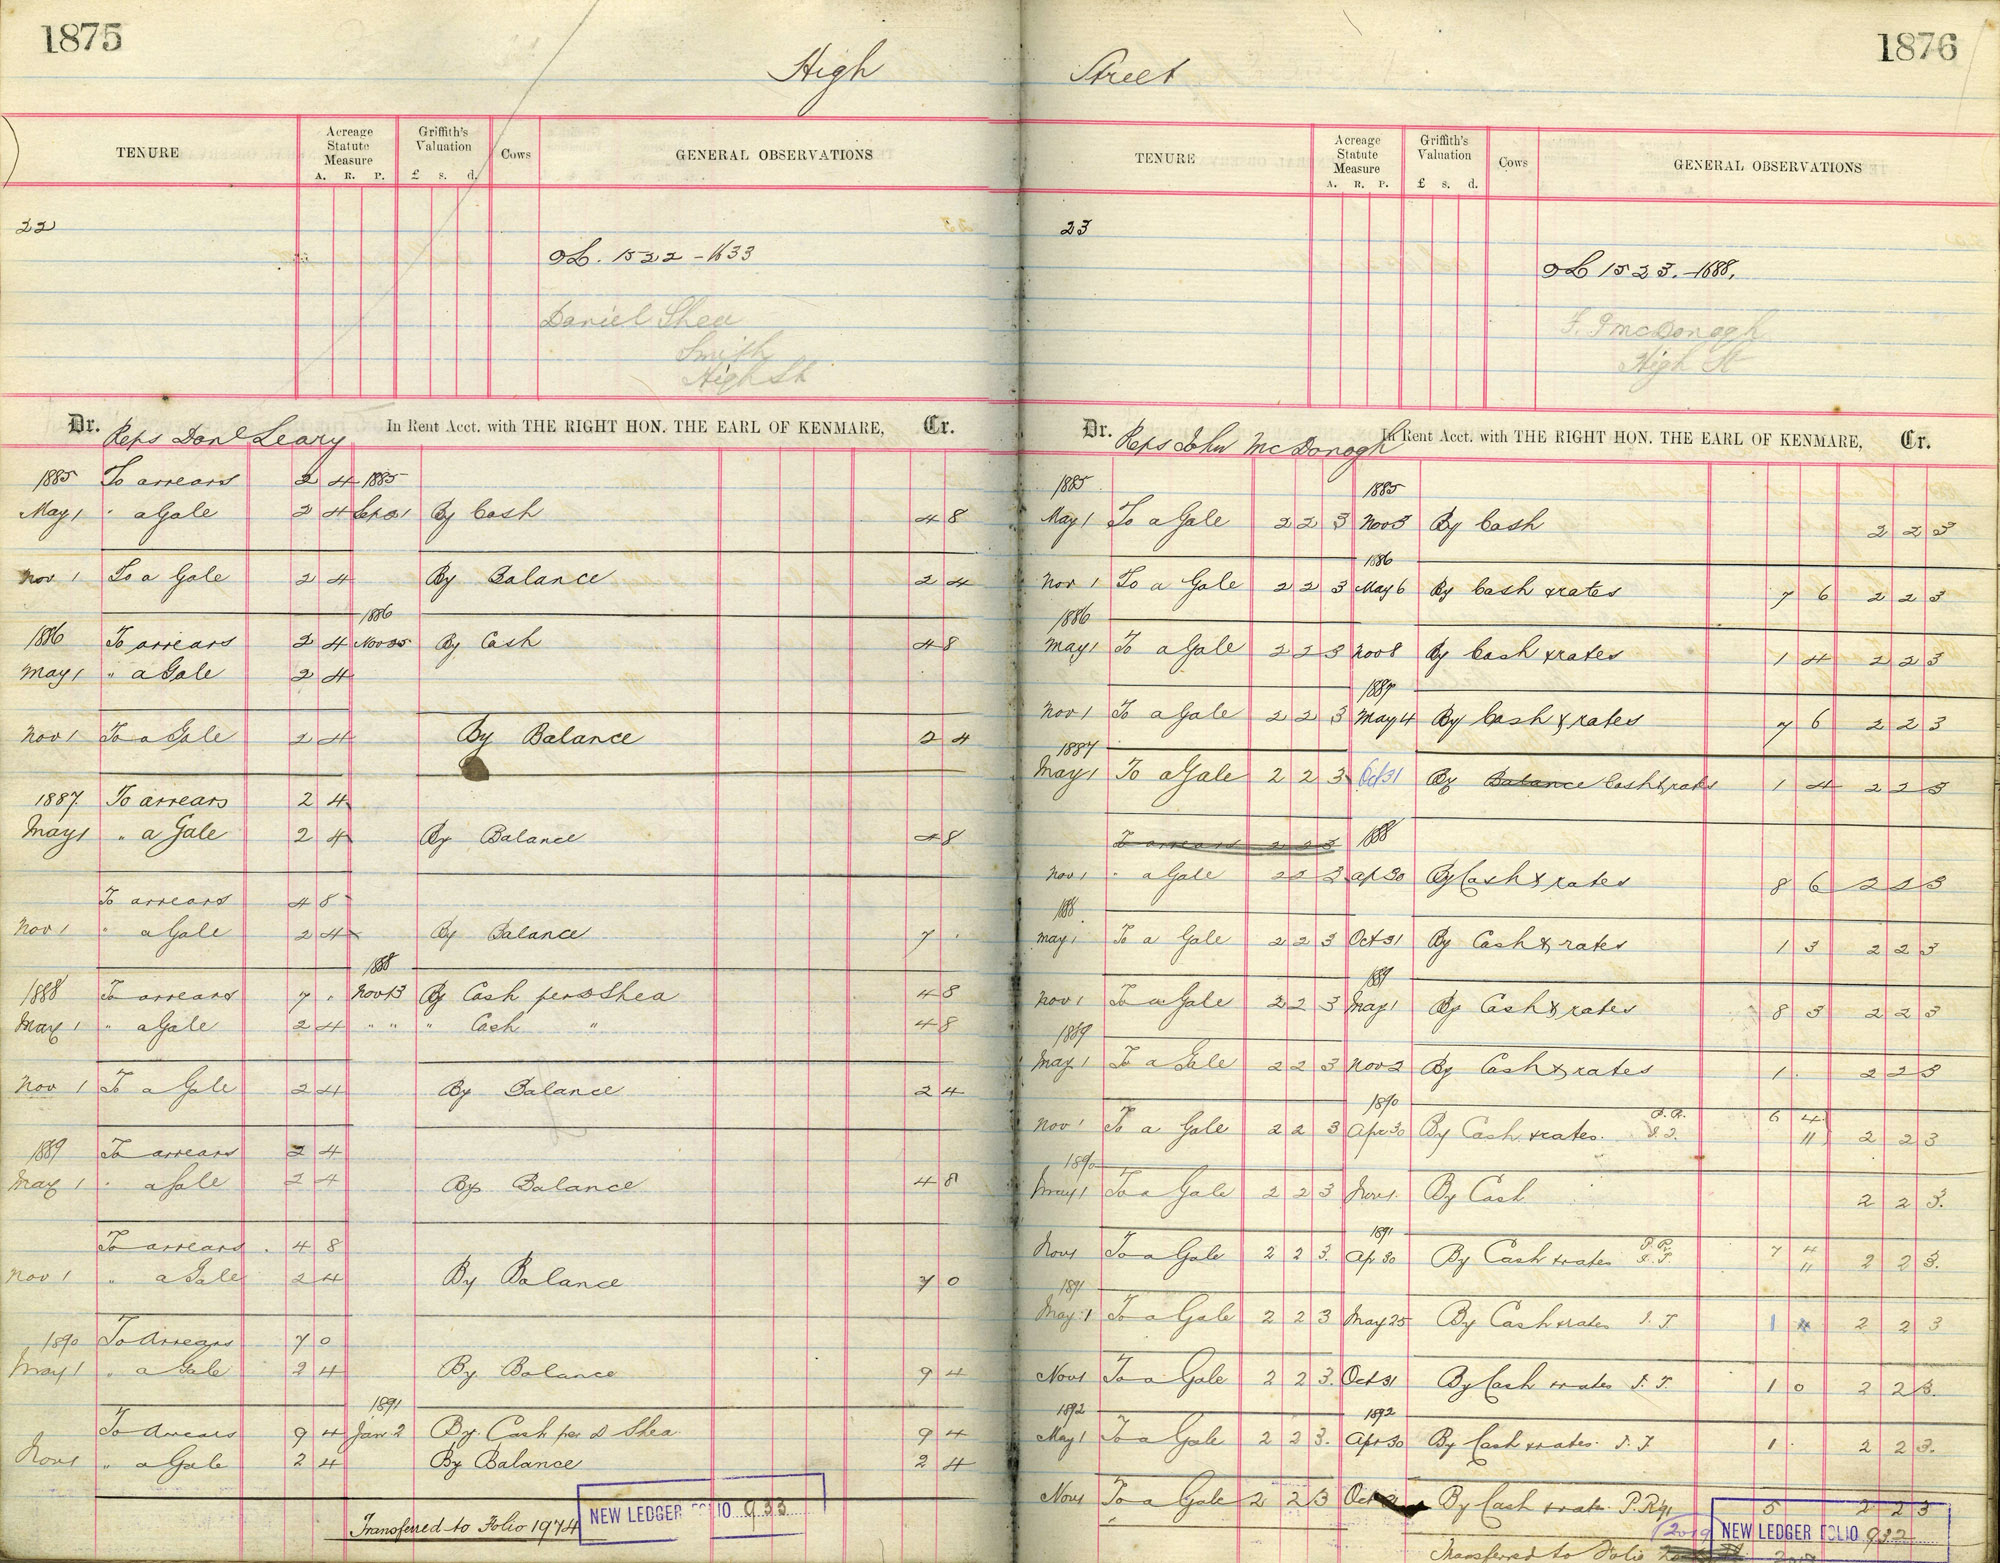 1875
High
TENURE
Acreage Statute Measure
A. R. P.
Griffith's Valuation
£ s. d.
Cows
GENERAL OBSERVATIONS
22
OL. 1522 - 1633
Daniel Shea
Smith
High St
Dr. Reps Danl Leary In Rent Acct. with THE RIGHT HON. THE EARL OF KENMARE, Cr.
1885 To arrears 2 4 1885
May 1 " a Gale 2 4 Sep 21 By Cash 4 8
Nov 1 To a Gale 2 4 By Balance 2 4
1886
1886 To arrears 2 4 Nov 25 By Cash 4 8
May 1 " a Gale 2 4
Nov 1 To a Gale 2 4 By Balance 2 4
1887 To arrears 2 4
May 1 " a Gale 2 4 By Balance 4 8
To arrears 4 8
Nov 1 " a Gale 2 4 By Balance 7 .
1888
1888 To arrears 7 . Nov 13 By Cash per D Shea 4 8
May 1 " a Gale 2 4 " " " Cash " 4 8
Nov 1 To a Gale 2 4 By Balance 2 4
1889 To arrears 2 4
May 1 " a Gale 2 4 By Balance 4 8
To arrears 4 8
Nov 1 " a Gale 2 4 By Balance 7 0
1890 To Arrears 7 0
May 1 " a Gale 2 4 By Balance 9 4
1891
To Arrears 9 4 Jan 2 By Cash per D Shea 9 4
Nov 1 " a Gale 2 4 By Balance 2 4
Transferred to Folio 1974
NEW LEDGER FOLIO 933
1876
Street
TENURE
Acreage Statute Measure
A. R. P.
Griffith's Valuation
£ s. d.
Cows
GENERAL OBSERVATIONS
23
OL 1523. - 1688.
F. J McDonogh
High St
Dr. Reps John McDonogh In Rent Acct. with THE RIGHT HON. THE EARL OF KENMARE, Cr.
1885 1885
May 1 To a Gale 2 2 3 Nov 3 By Cash 2 2 3
1886
Nov 1 To a Gale 2 2 3 May 6 By Cash & rates 7 6 2 2 3
1886
May 1 To a Gale 2 2 3 Nov 8 By Cash & rates 1 4 2 2 3
1887
Nov 1 To a Gale 2 2 3 May 4 By Cash & rates 7 6 2 2 3
1887
May 1 To a Gale 2 2 3 Oct 31 By Balance Cash & rates 1 4 2 2 3
To arrears 2 2 3 1888
Nov 1 " a Gale 2 2 3 Ap 30 By Cash & rates 8 6 2 2 3
1888
May 1 To a Gale 2 2 3 Oct 31 By Cash & rates 1 3 2 2 3
1889
Nov 1 To a Gale 2 2 3 May 1 By Cash & rates 8 3 2 2 3
1889
May 1 To a Gale 2 2 3 Nov 2 By Cash & rates 1 . 2 2 3
1890 P.R. 6 4
Nov 1 To a Gale 2 2 3 Apr 30 By Cash & rates. I.T. 11 2 2 3
1890
May 1 To a Gale 2 2 3 Nov 1. By Cash 2 2 3.
1891 P.R. 7 4
Nov 1 To a Gale 2 2 3. Ap 30 By Cash & rates I.T. 11 2 2 3.
1891
May 1 To a Gale 2 2 3 May 25 By Cash & rates I.T 1 4 2 2 3
Nov 1 To a Gale 2 2 3. Oct 31 By Cash & rates I.T. 1 0 2 2 3.
1892 1892
May 1 To a Gale 2 2 3. Apr 30 By Cash & rates. I.T 1 . 2 2 3.
Nov 1 To a Gale 2 2 3 Oct By Cash & rate P.R 91 5 2 2 3
2019 NEW LEDGER FOLIO 932
Transferred to Folio